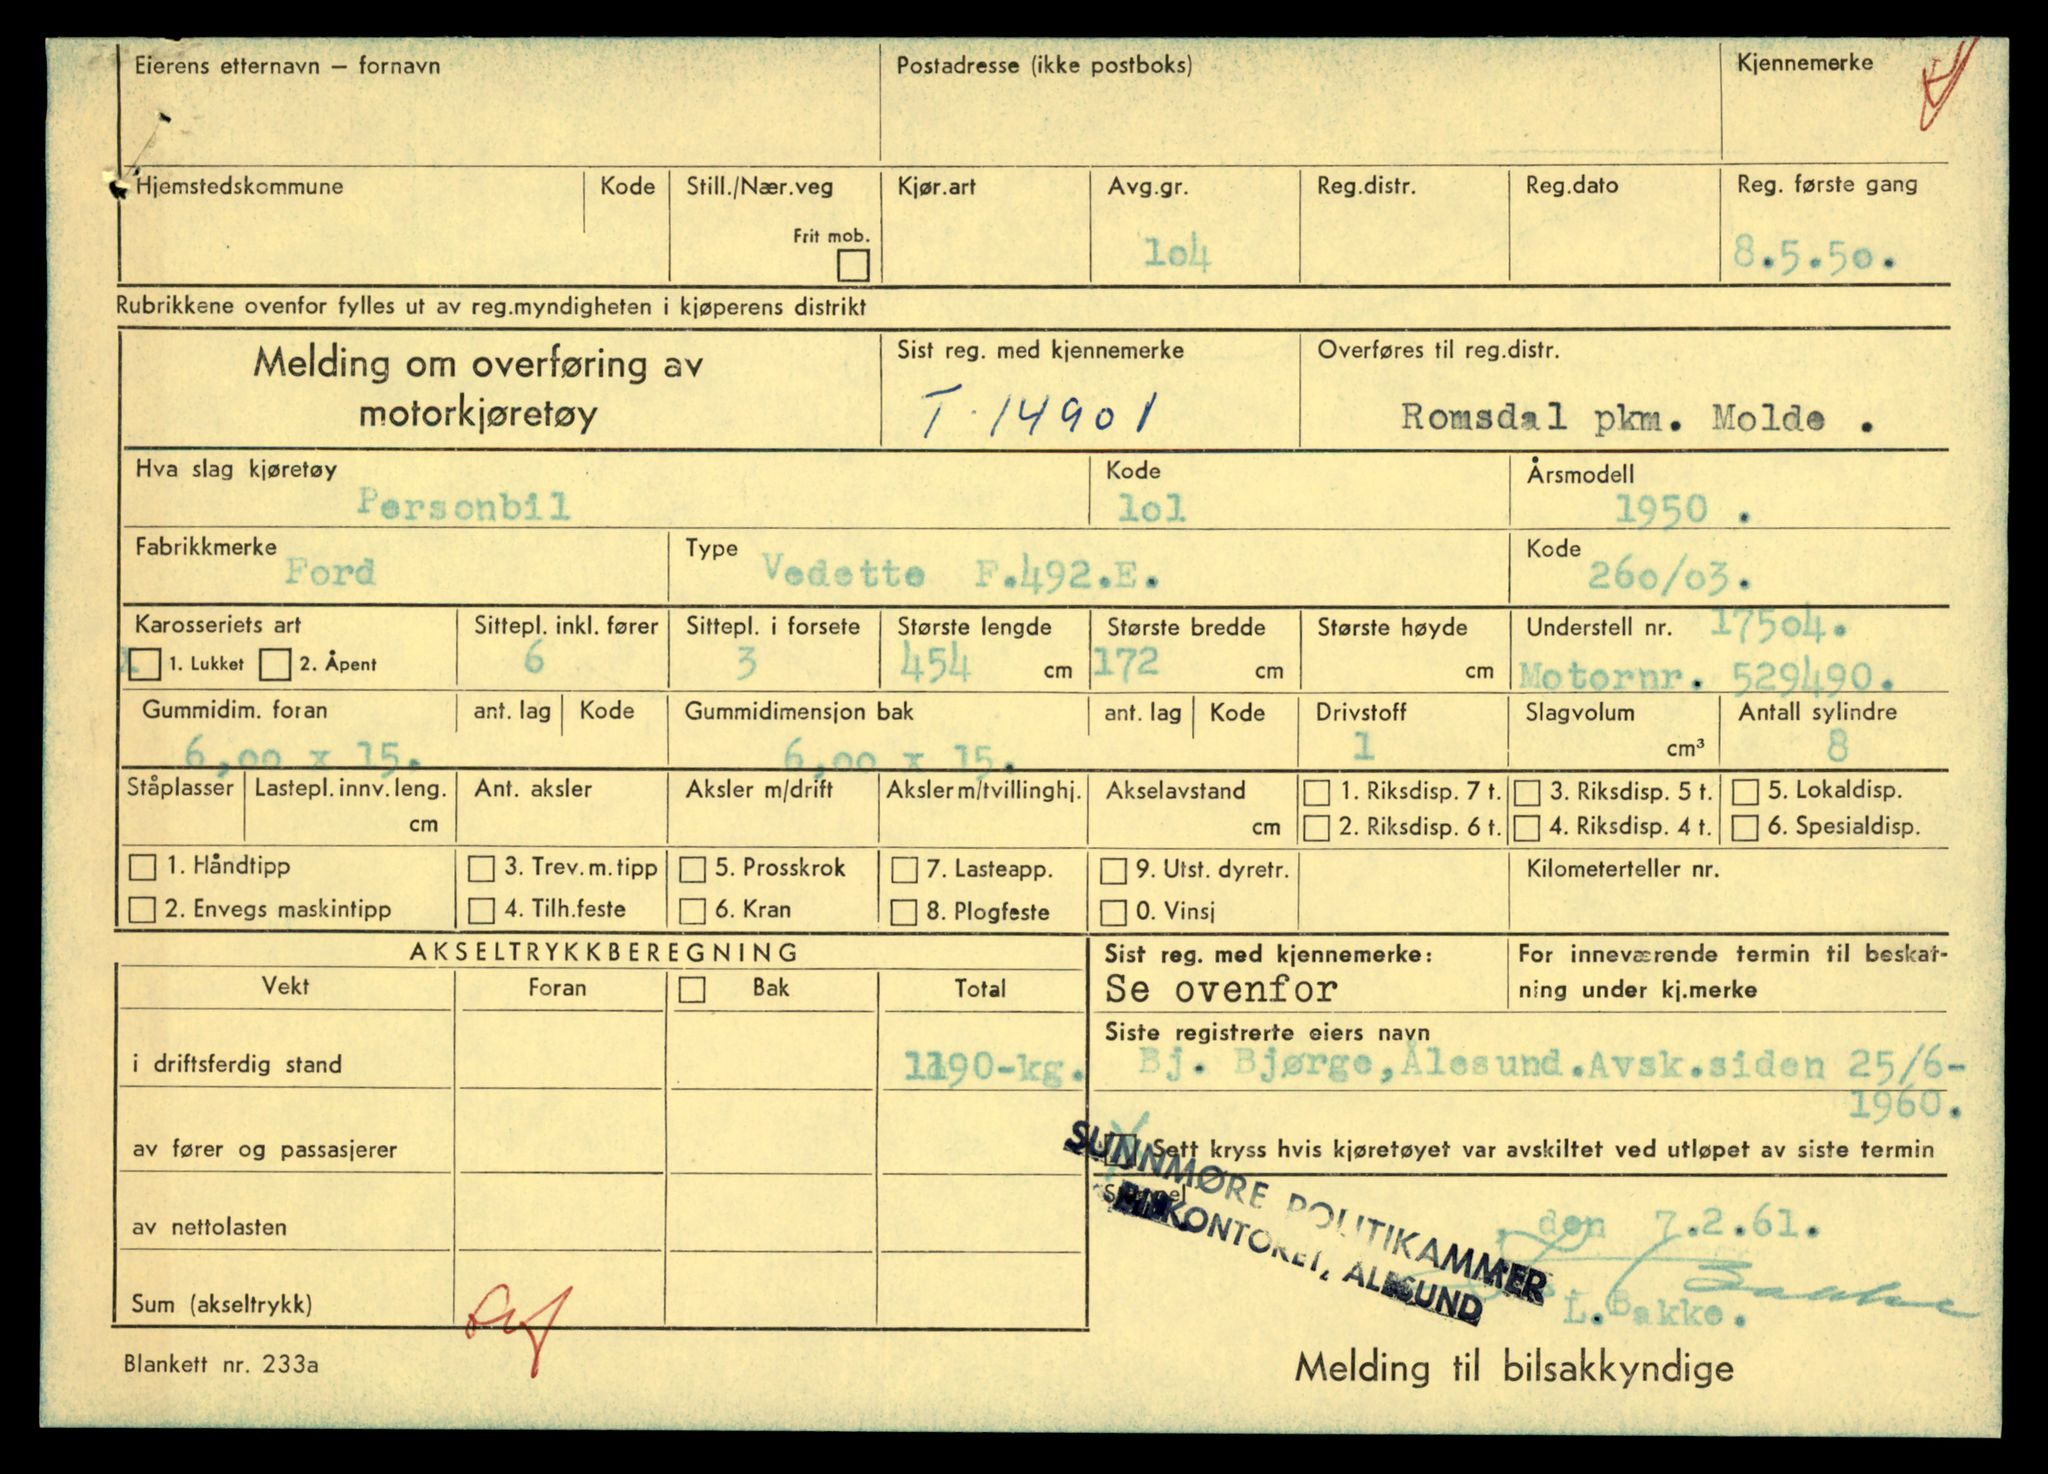 Eierens etternavn – fornavn Postadresse (ikke postboks) Kjennemerke
Hjemstedskommune Kode Still./Nær.veg Kjør.art Avg.gr. Reg.distr. Reg.dato Reg. første gang
Frit mob.
1o4 8.5.5o.
Rubrikkene ovenfor fylles ut av reg.myndigheten i kjøperens distrikt
Melding om overføring av Sist reg. med kjennemerke Overføres til reg.distr.
motorkjøretøy T-14901 Romsdal pkm. Molde .
Hva slag kjøretøy Kode Årsmodell
Personbil 1o1 1950 .
Fabrikkmerke Type Kode
Ford Vedette F.492.E. 26o/o3.
Karosseriets art Sittepl. inkl. fører Sittepl. i forsete Største lengde Største bredde Største høyde Understell nr. 175o4.
x 1. Lukket 2. Åpent 6 3 454 cm 172 cm cm Motornr. 529490.
Gummidim. foran ant. lag Kode Gummidimensjon bak ant. lag Kode Drivstoff Slagvolum Antall sylindre
6,oo x 15. 6,oo x 15. 1 cm³ 8
Ståplasser Lastepl. innv. leng. Ant. aksler Aksler m/drift Aksler m/tvillinghj. Akselavstand 1. Riksdisp. 7 t. 3. Riksdisp. 5 t. 5. Lokaldisp.
cm cm 2. Riksdisp. 6 t. 4. Riksdisp. 4 t. 6. Spesialdisp.
1. Håndtipp 3. Trev. m. tipp 5. Prosskrok 7. Lasteapp. 9. Utst. dyretr. Kilometerteller nr.
2. Envegs maskintipp 4. Tilh.feste 6. Kran 8. Plogfeste 0. Vinsj
AKSELTRYKKBEREGNING Sist reg. med kjennemerke: For inneværende termin til beskat-
Vekt Foran Bak Total Se ovenfor ning under kj.merke
Siste registrerte eiers navn
i driftsferdig stand 1190-kg. Bj. Bjørge, Ålesund.Avsk.siden 25/6-
1960.
av fører og passasjerer Sett kryss hvis kjøretøyet var avskiltet ved utløpet av siste termin
Stempel
SUNNMØRE POLITIKAMMER
BILKONTORET, ÅLESUND
av nettolasten den 7.2.61.
Bakke
Sum (akseltrykk) L.Bakke.
Blankett nr. 233a Melding til bilsakkyndige